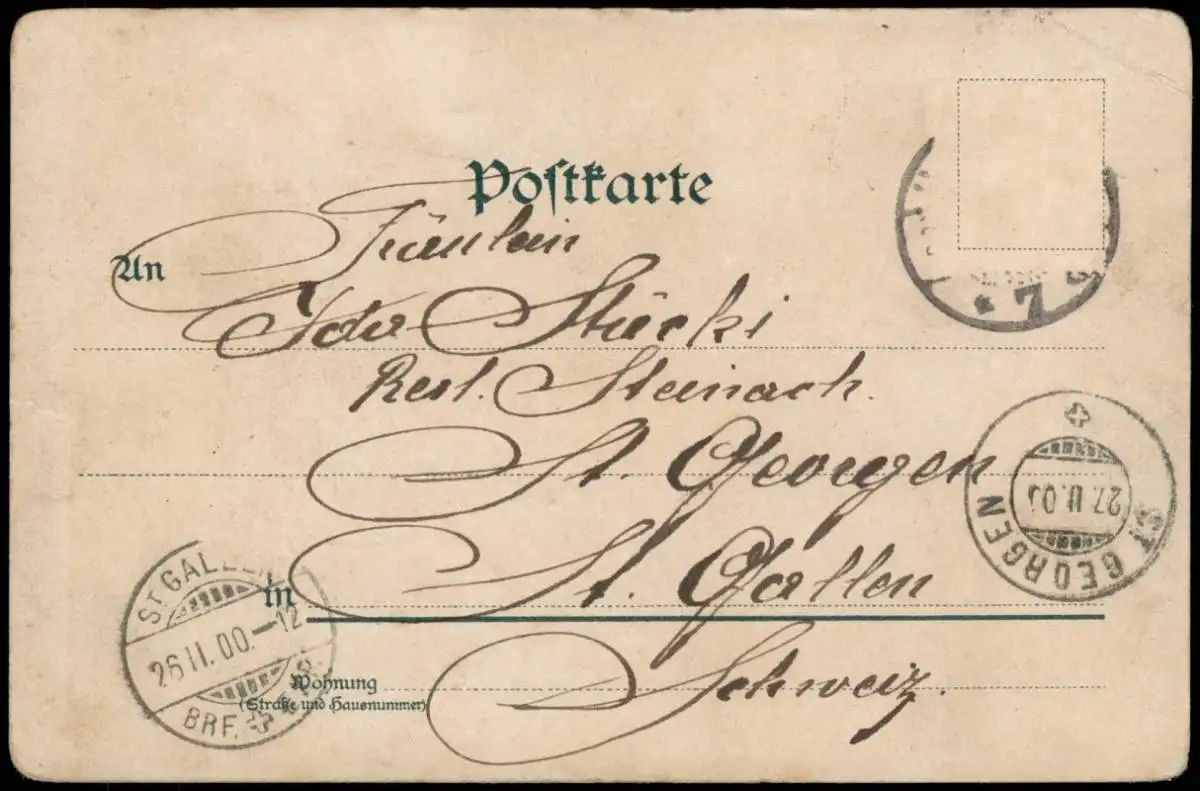 Postkarte
An Fräulein
Ida Stücki
Rest. Steinach.
St. Georgen
in St. Gallen
Schweiz.
Wohnung
(Straße und Hausnummer)
* 7
ST. GEORGEN
27.II.00
ST. GALLEN
26 II. 00.–12
BRF.